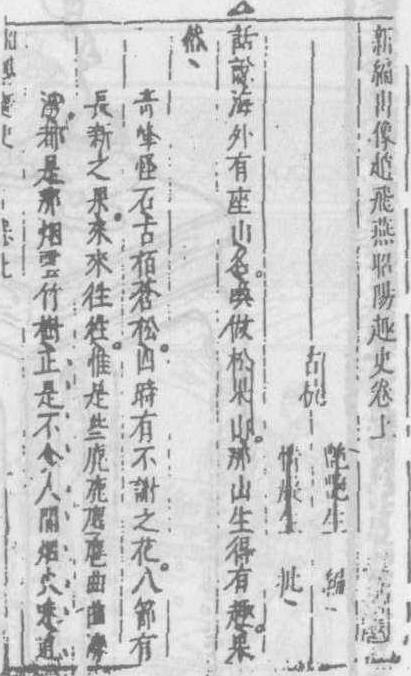 新編出像趙飛燕昭陽趣史卷上
古杭
艷艷生 編
情癡生 批
話說海外有座山名喚做松果山那山生得有趣果
然
青峰怪石古栢蒼松四時有不謝之花八節有
長新之果來來往往惟是些
都是那烟雲竹樹正是不令人間烟火